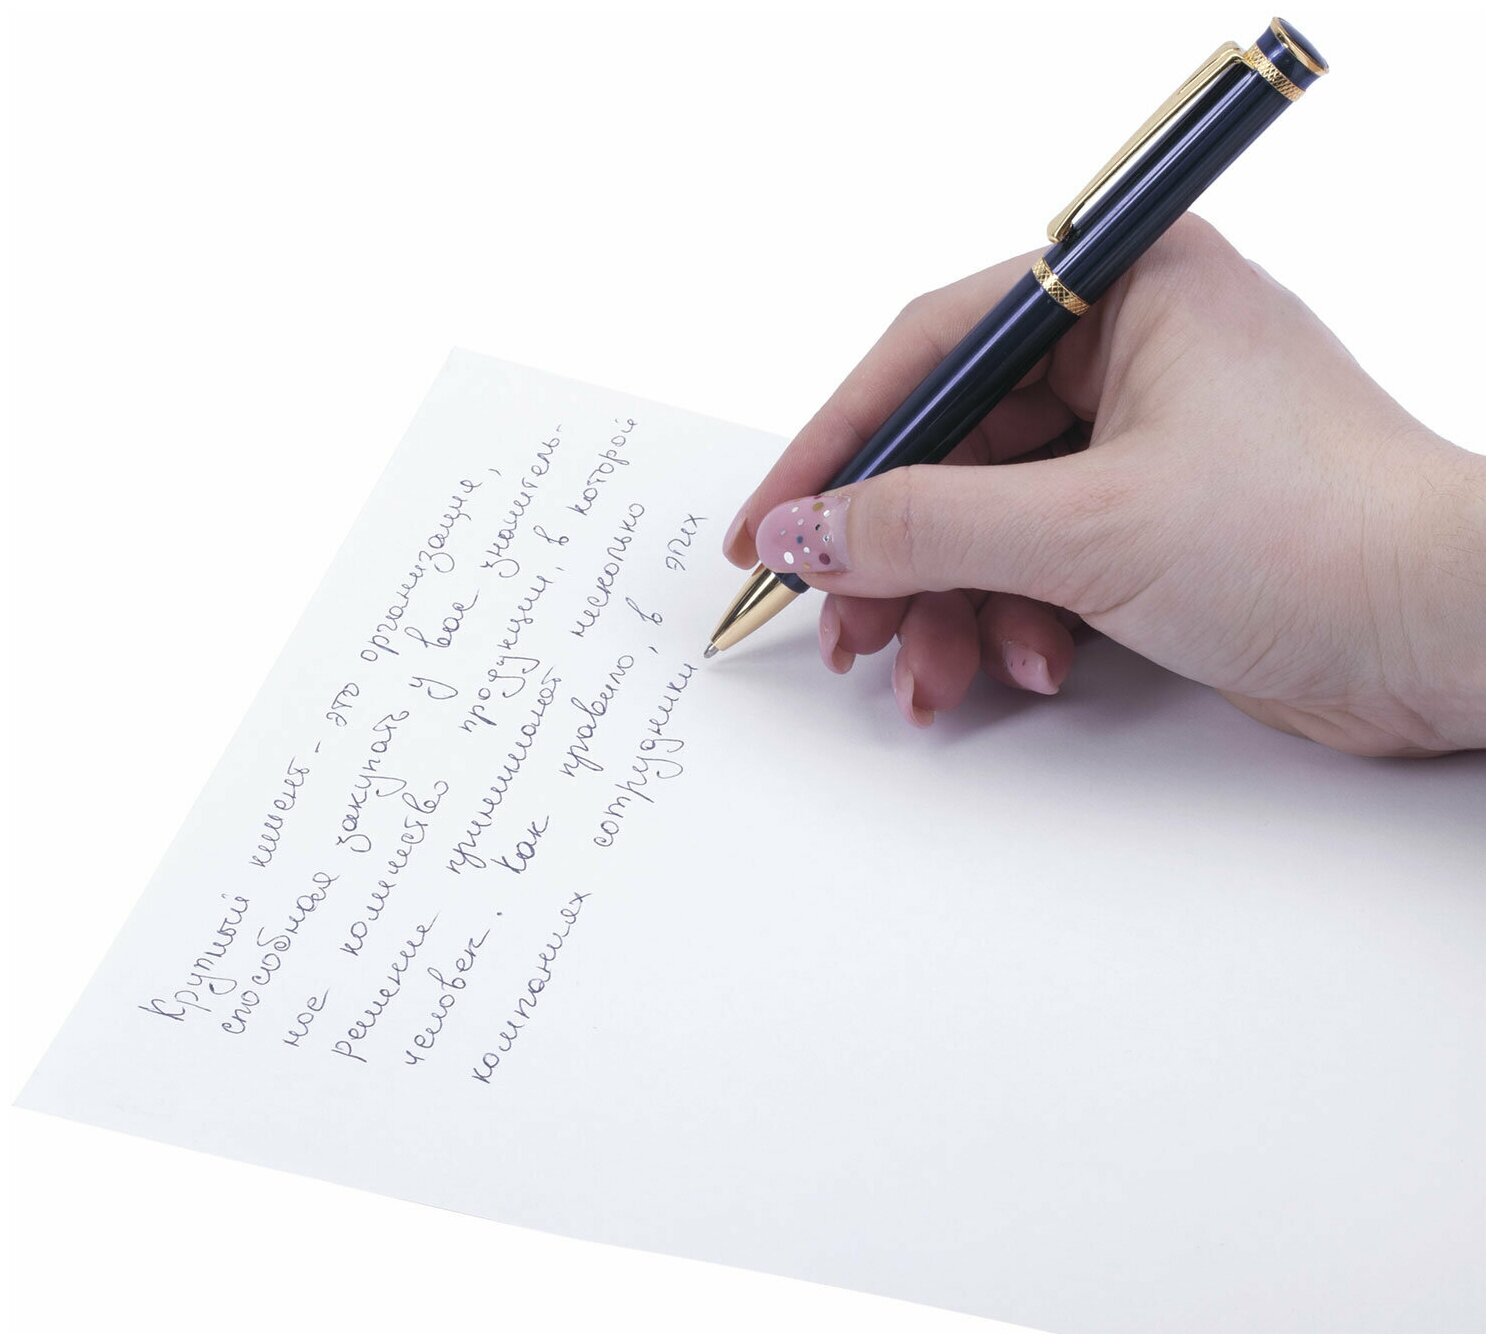 Крупный клиент - это организация,
способная закупать у вас значитель-
ное количество продукции, в которой
решение принимают несколько
человек. Как правило, в этих
компаниях сотрудники